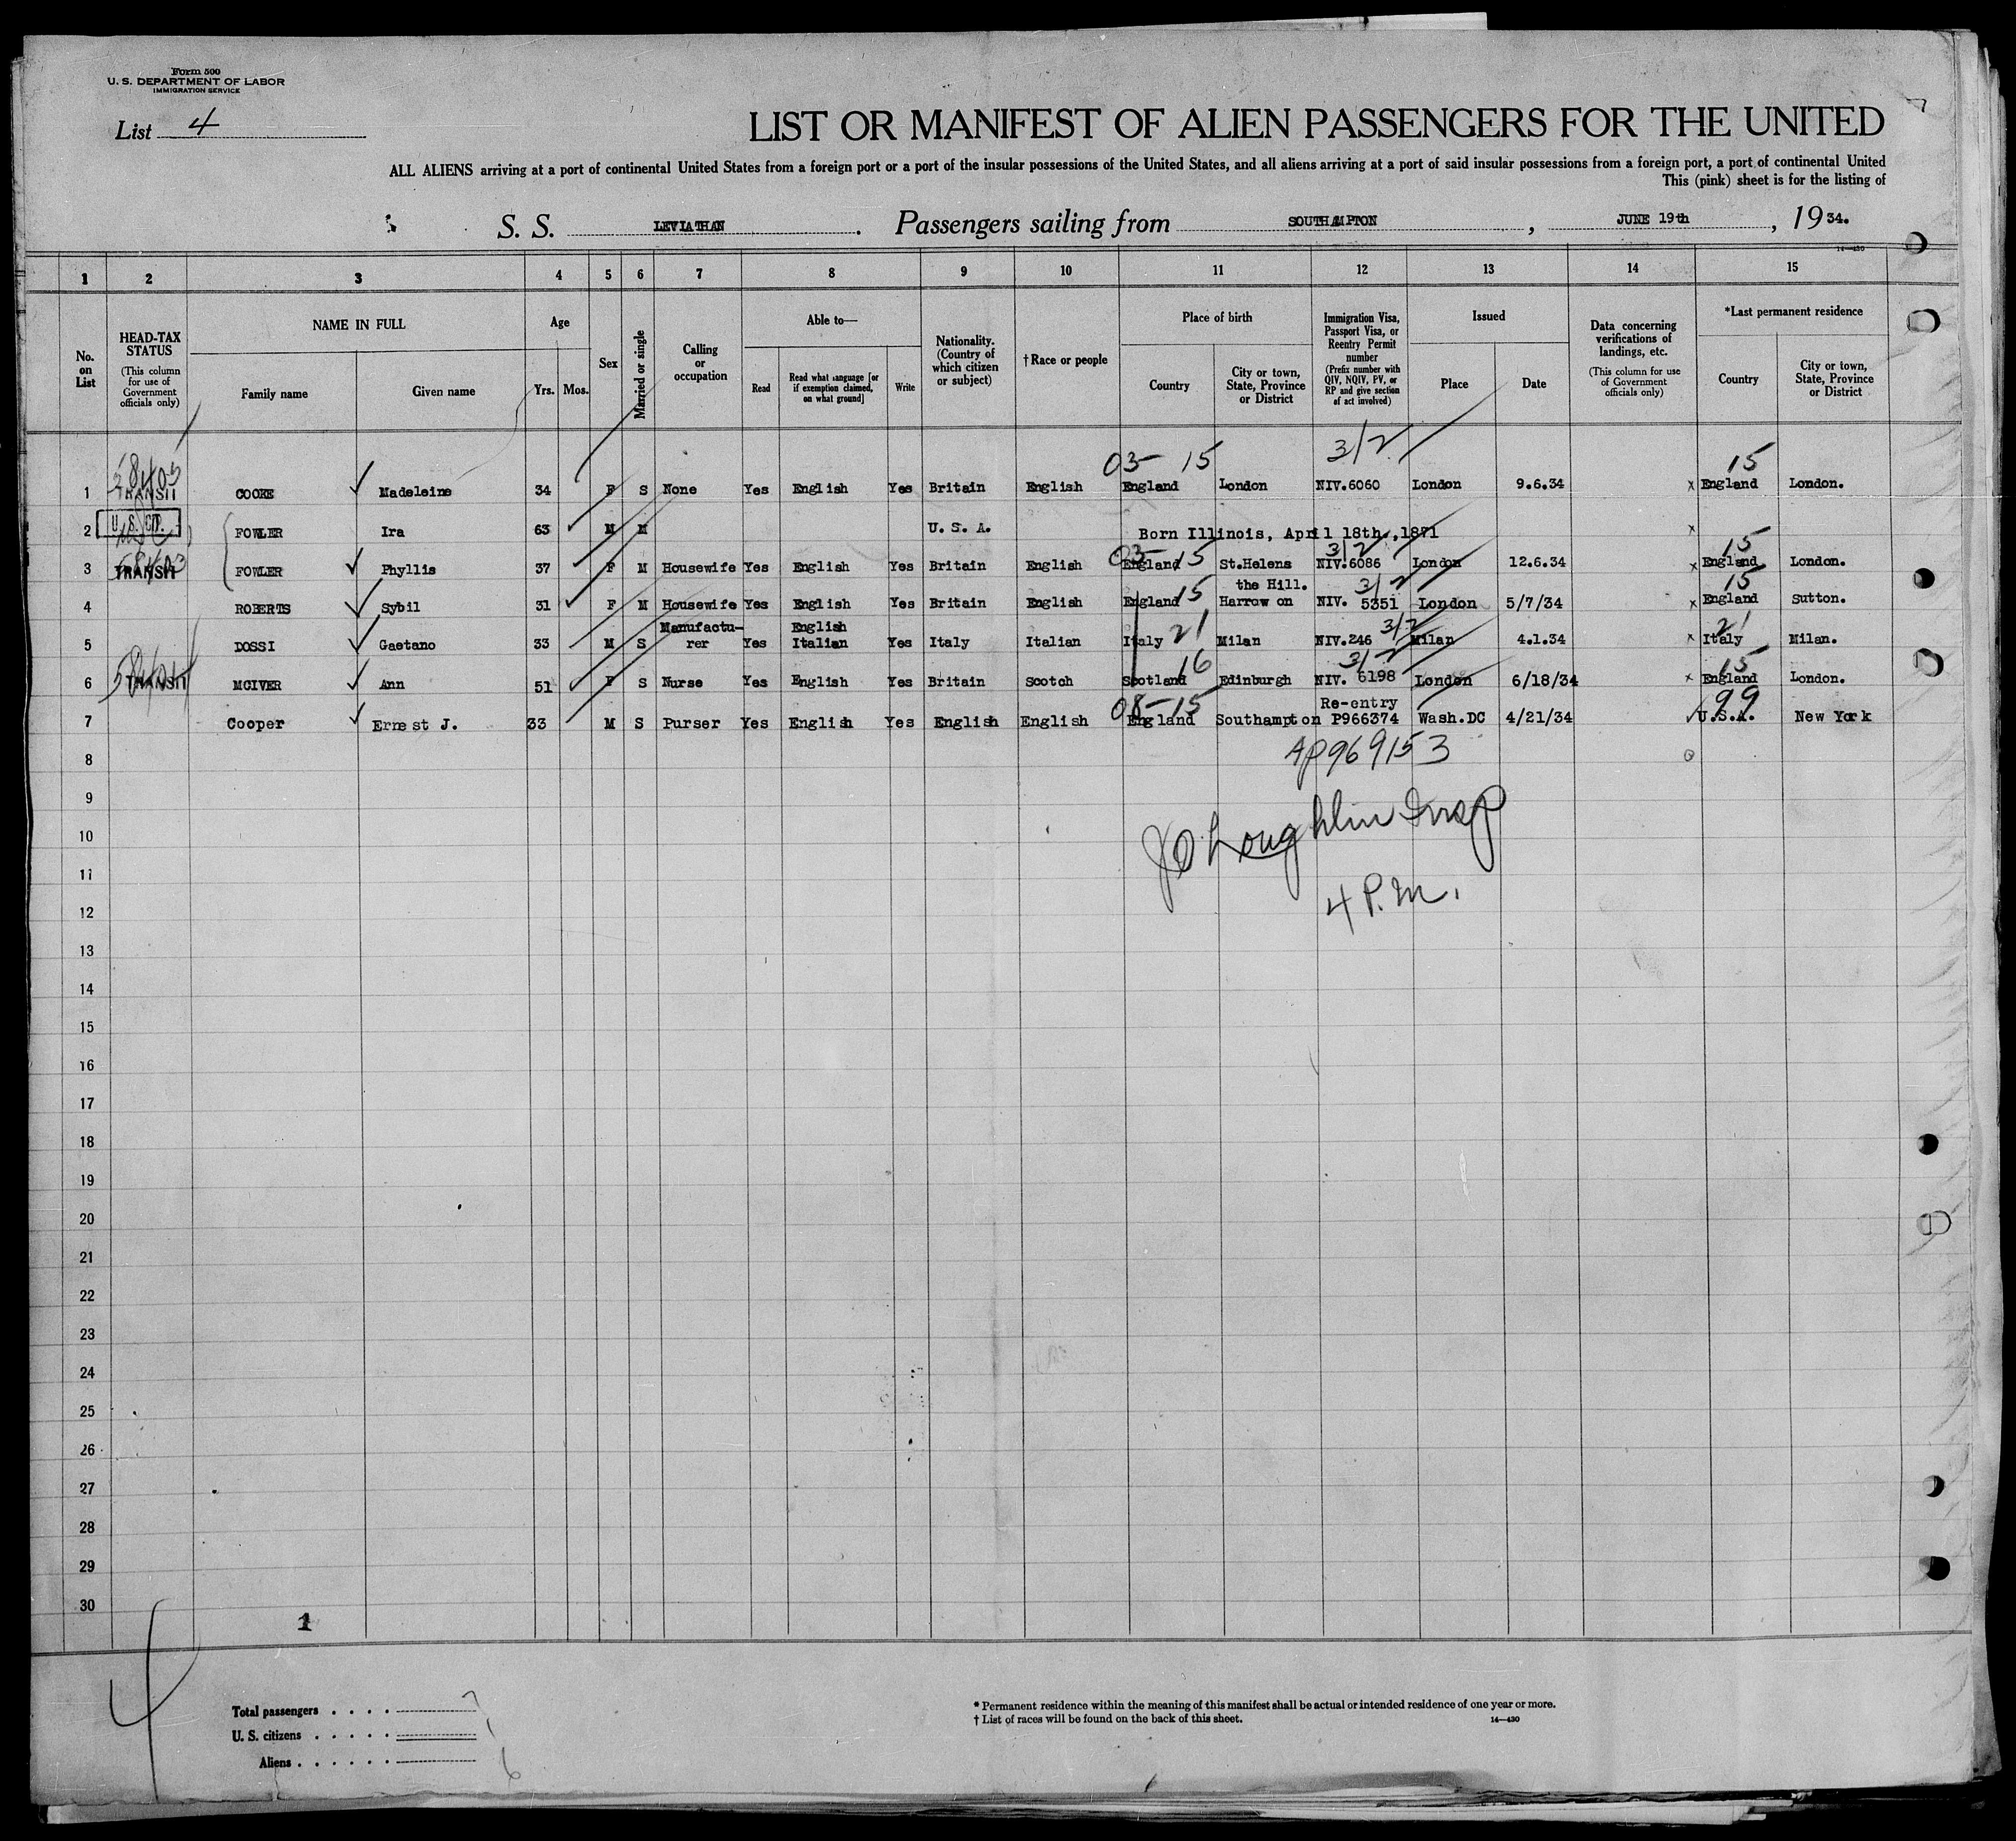 Form 500
U. S. DEPARTMENT OF LABOR
IMMIGRATION SERVICE
List 4
LIST OR MANIFEST OF ALIEN PASSENGERS FOR THE UNITED
ALL ALIENS arriving at a port of continental United States from a foreign port or a port of the insular possessions of the United States, and all aliens arriving at a port of said insular possessions from a foreign port, a port of continental United
This (pink) sheet is for the listing of
S. S. LEVIATHAN. Passengers sailing from SOUTHAMPTON, JUNE 19th, 1934.
14—430
1 2 3 4 5 6 7 8 9 10 11 12 13 14 15
No. on List
HEAD-TAX STATUS
(This column for use of Government officials only)
NAME IN FULL
Family name
Given name
Age
Yrs.
Mos.
Sex
Married or single
Calling or occupation
Able to—
Read
Read what language [or if exemption claimed, on what ground]
Write
Nationality. (Country of which citizen or subject)
†Race or people
Place of birth
Country
City or town, State, Province or District
Immigration Visa, Passport Visa, or Reentry Permit number
(Prefix number with QIV, NQIV, PV, or RP and give section of act involved)
Issued
Place
Date
Data concerning verifications of landings, etc.
(This column for use of Government officials only)
*Last permanent residence
Country
City or town, State, Province or District
03 15 3/2 15
1 TRANSIT COOKE Madeleine 34 F S None Yes English Yes Britain English England London NIV.6060 London 9.6.34 x England London.
2 U. S. CIT. FOWLER Ira 63 M M U. S. A. Born Illinois, April 18th.,1871 x
03 15 3/2 15
3 TRANSIT FOWLER Phyllis 37 F M Housewife Yes English Yes Britain English England St.Helens NIV.6086 London 12.6.34 x England London.
15 the Hill. 3/2 15
4 ROBERTS Sybil 31 F M Housewife Yes English Yes Britain English England Harrow on NIV. 5351 London 5/7/34 x England Sutton.
Manufactu- English 21 3/2 21
5 DOSSI Gaetano 33 M S rer Yes Italian Yes Italy Italian Italy Milan NIV.246 Milan 4.1.34 x Italy Milan.
16 3/2 15
6 TRANSIT MCIVER Ann 51 F S Nurse Yes English Yes Britain Scotch Scotland Edinburgh NIV. 6198 London 6/18/34 x England London.
08-15 Re-entry 99
7 Cooper Ernest J. 33 M S Purser Yes English Yes English English England Southampton P966374 Wash.DC 4/21/34 U.S.A. New York
8 AP969153
9
10 Insp
11
12 4 P.M.
13
14
15
16
17
18
19
20
21
22
23
24
25
26
27
28
29
30
1
4
Total passengers . . . . 7
U. S. citizens . . . . . 1
Aliens . . . . . . 6
* Permanent residence within the meaning of this manifest shall be actual or intended residence of one year or more.
† List of races will be found on the back of this sheet.
14—430